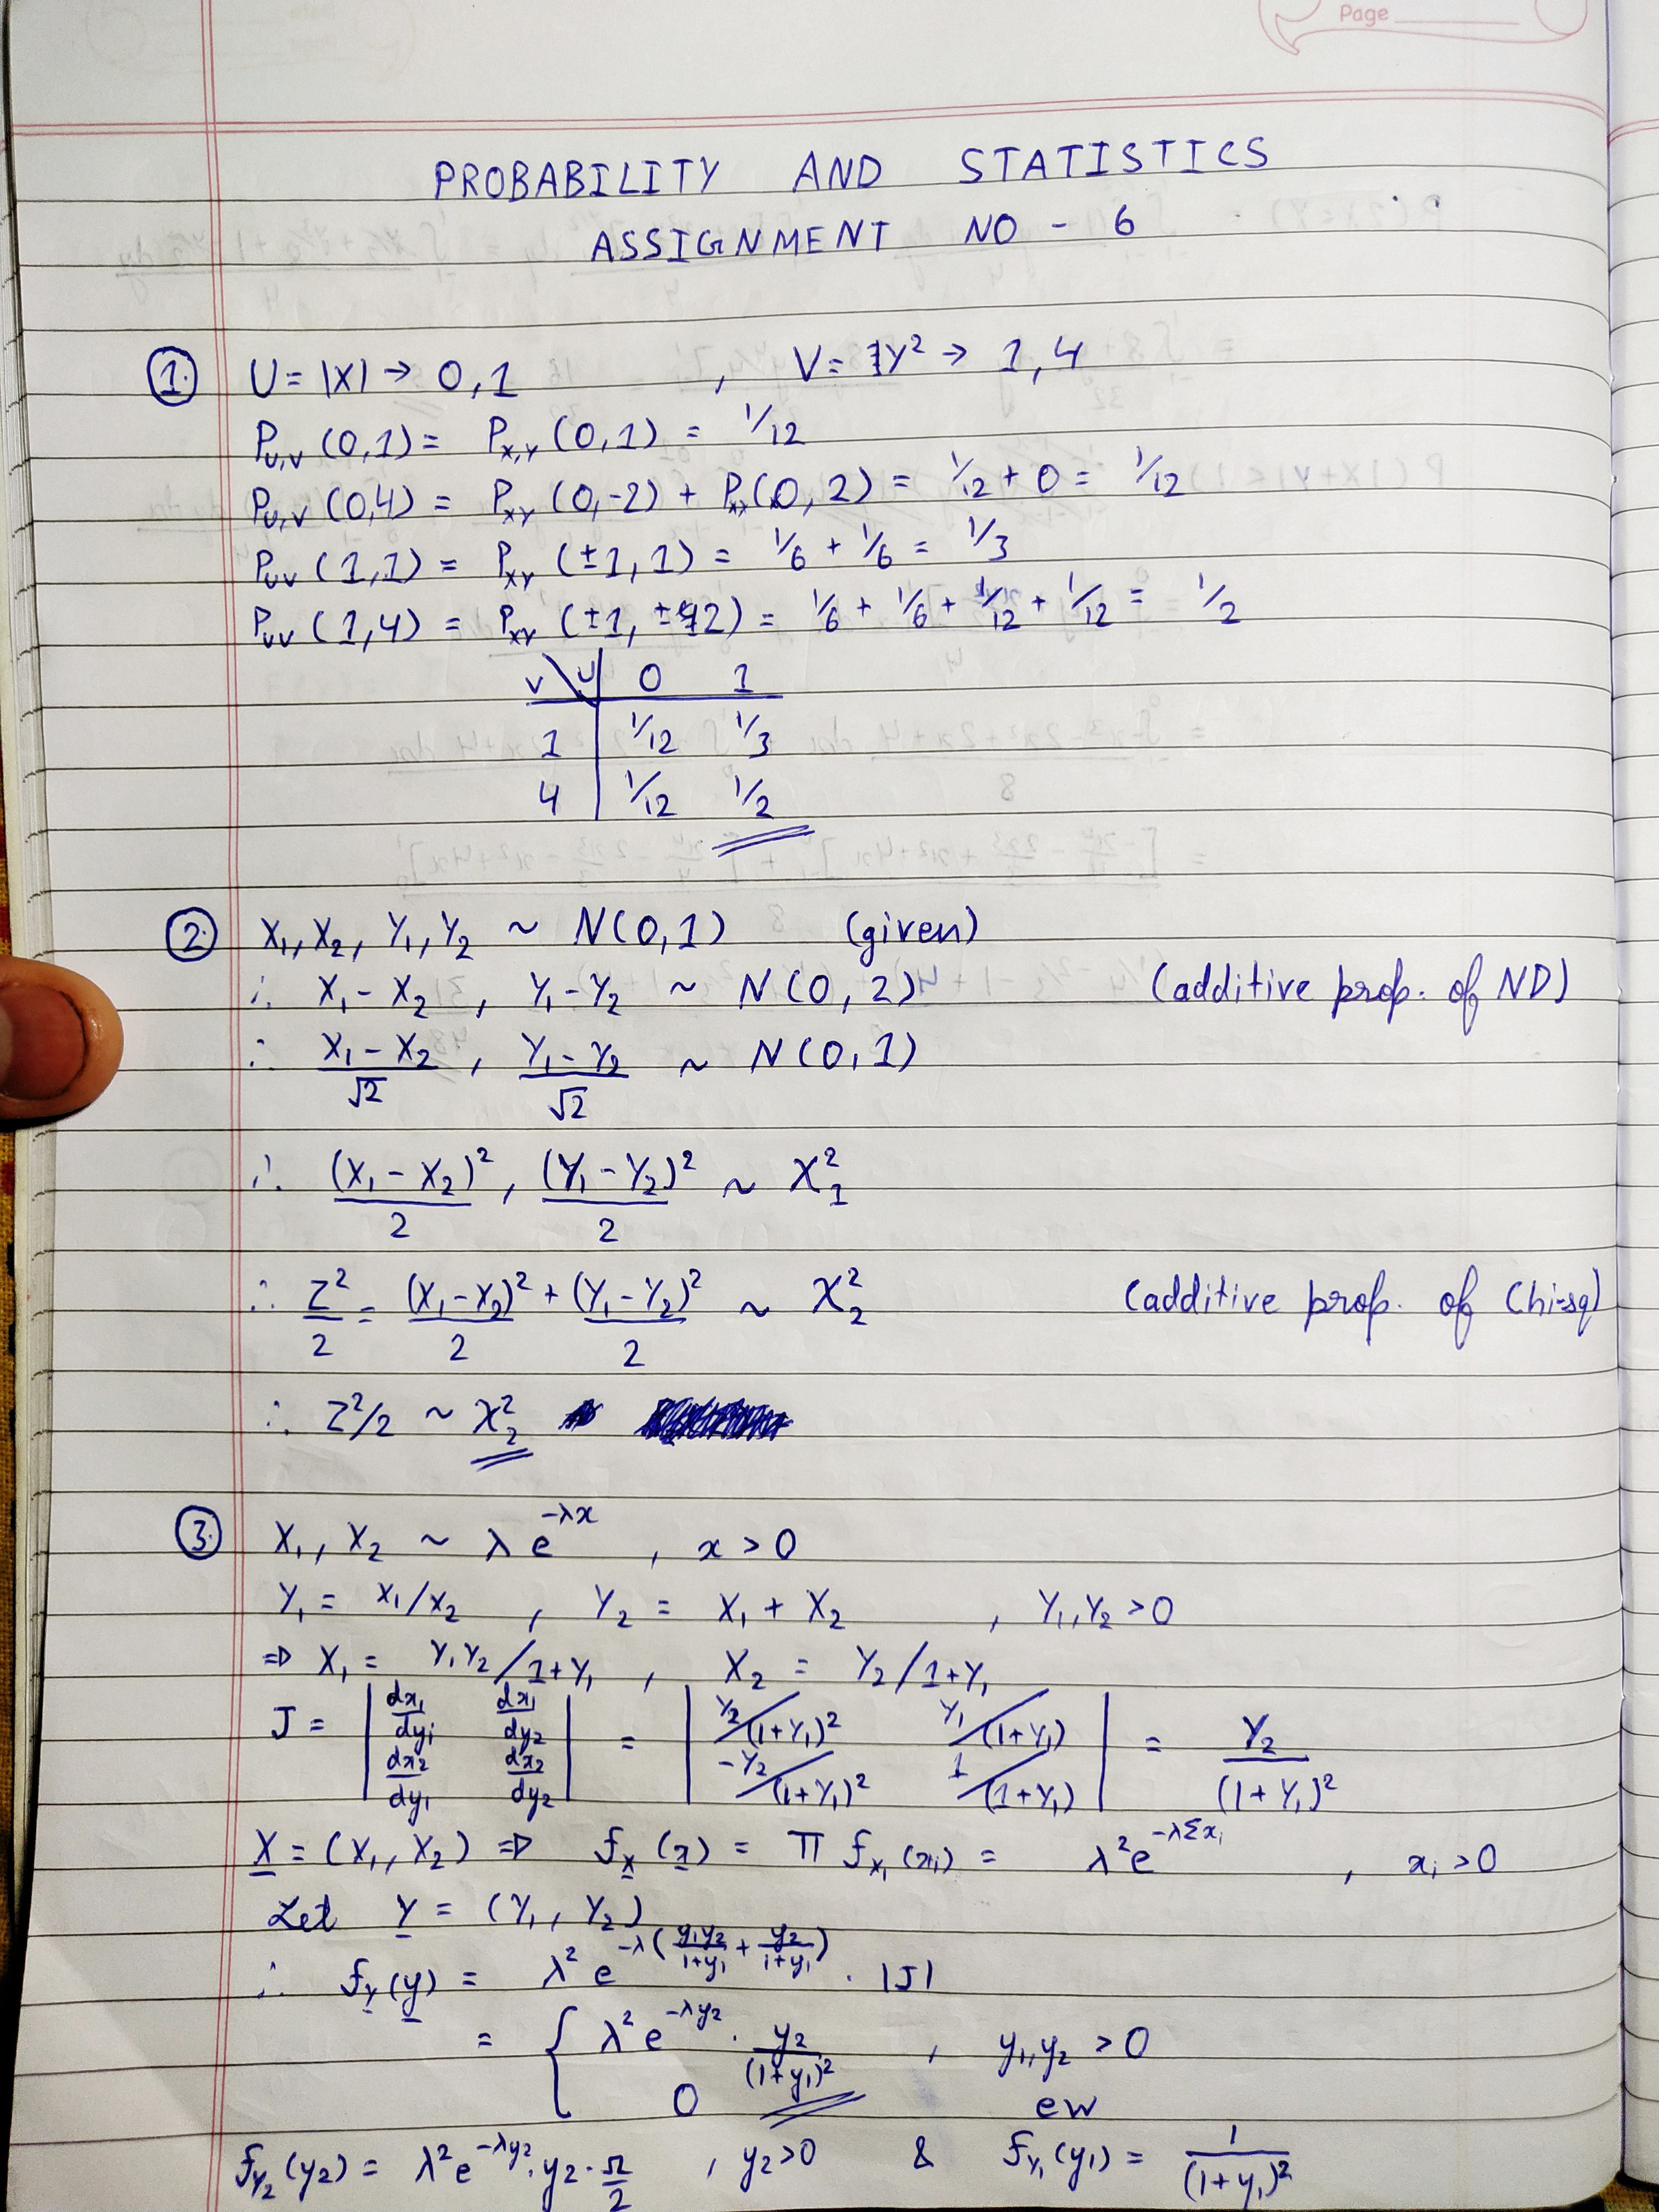 Page
PROBABILITY AND STATISTICS
ASSIGNMENT NO - 6
① U = |X| → 0, 1 , V = Y² → 1, 4
P_{U,V} (0,1) = P_{X,Y} (0,1) = 1/12
P_{U,V} (0,4) = P_{XY} (0,-2) + P_{XY} (0, 2) = 1/12 + 0 = 1/12
P_{UV} (1,1) = P_{XY} (±1, 1) = 1/6 + 1/6 = 1/3
P_{UV} (1,4) = P_{XY} (±1, ±2) = 1/6 + 1/6 + 1/12 + 1/12 = 1/2
V \ U | 0 1
1 | 1/12 1/3
4 | 1/12 1/2
② X₁, X₂, Y₁, Y₂ ~ N(0,1) (given)
∴ X₁ - X₂ , Y₁ - Y₂ ~ N(0, 2) (additive prop. of ND)
∴ (X₁ - X₂)/√2 , (Y₁ - Y₂)/√2 ~ N(0, 1)
∴ (X₁ - X₂)²/2 , (Y₁ - Y₂)²/2 ~ χ²₁
∴ Z²/2 = (X₁ - X₂)²/2 + (Y₁ - Y₂)²/2 ~ χ²₂ (additive prop. of Chi-sq)
∴ Z²/2 ~ χ²₂
③ X₁, X₂ ~ λ e^{-λx} , x > 0
Y₁ = X₁/X₂ , Y₂ = X₁ + X₂ , Y₁, Y₂ > 0
⇒ X₁ = Y₁Y₂/1+Y₁ , X₂ = Y₂/1+Y₁
J = | dx₁/dy₁ dx₁/dy₂ ; dx₂/dy₁ dx₂/dy₂ | = | Y₂/(1+Y₁)² Y₁/(1+Y₁) ; -Y₂/(1+Y₁)² 1/(1+Y₁) | = Y₂/(1+Y₁)²
X = (X₁, X₂) ⇒ f_X (x) = Π f_{X_i} (x_i) = λ² e^{-λΣx_i} , x_i > 0
Let Y = (Y₁, Y₂)
∴ f_Y (y) = λ² e^{-λ(y₁y₂/1+y₁ + y₂/1+y₁)} . |J|
= { λ² e^{-λy₂} . y₂/(1+y₁)² , y₁, y₂ > 0
0 ew
f_{Y₂} (y₂) = λ² e^{-λy₂} . y₂ . π/2 , y₂ > 0 & f_{Y₁} (y₁) = 1/(1+y₁)²